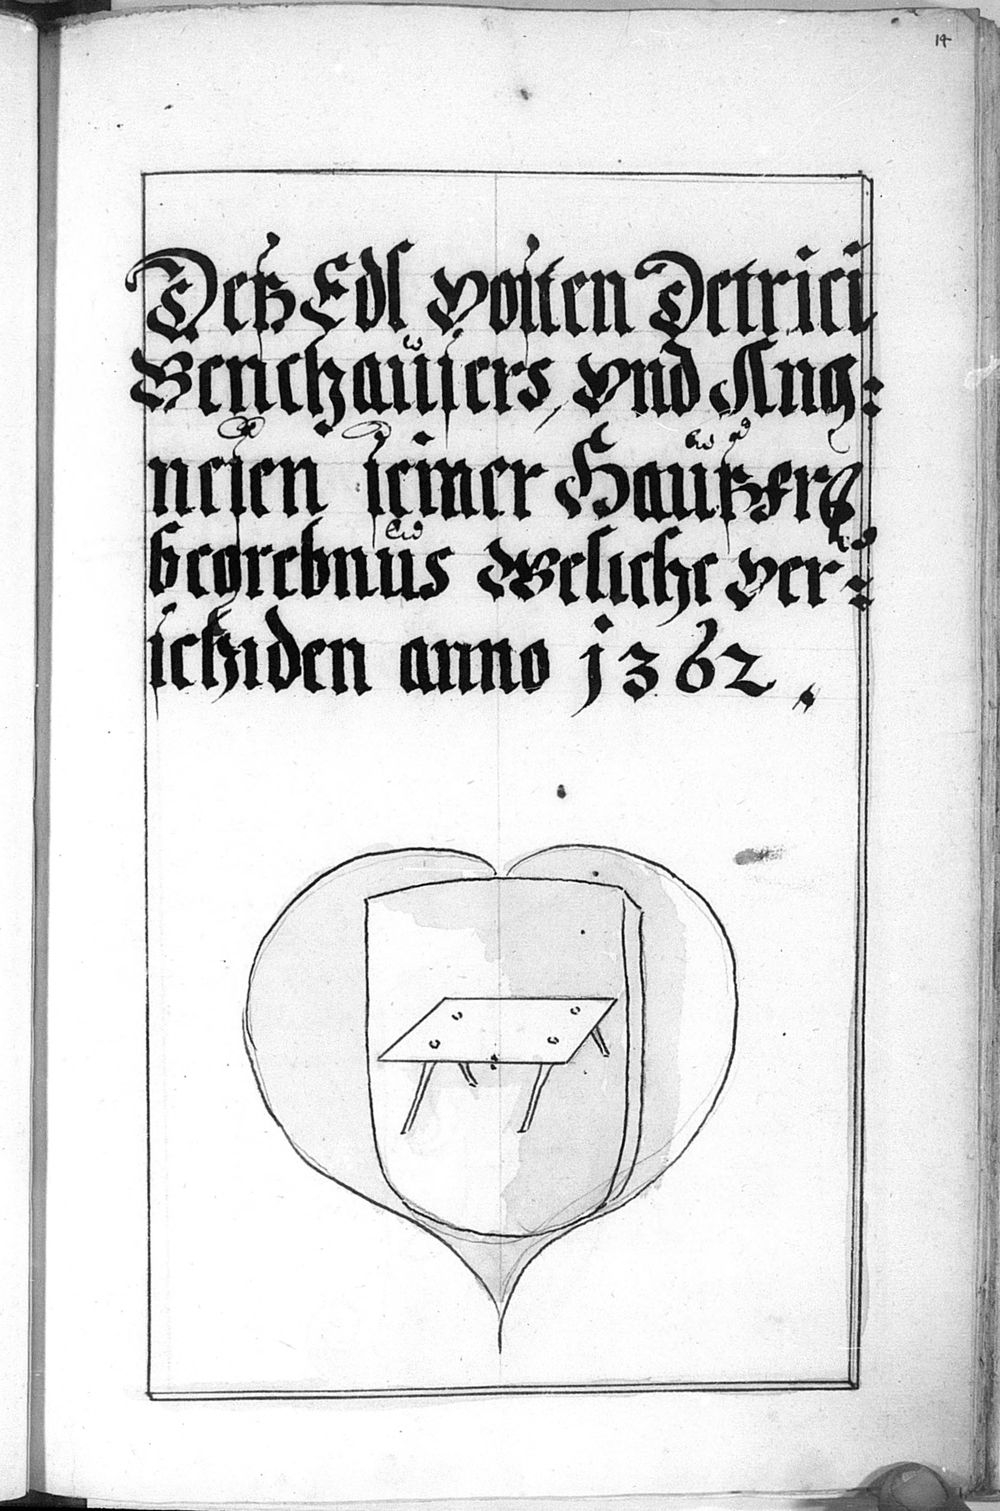 14
Deß Edl vössten Detrici
Benckhaüsers, vnd Ang:
nesen seiner Haüßfr
begrebnüs Weliche ver:
schiden anno 1362.